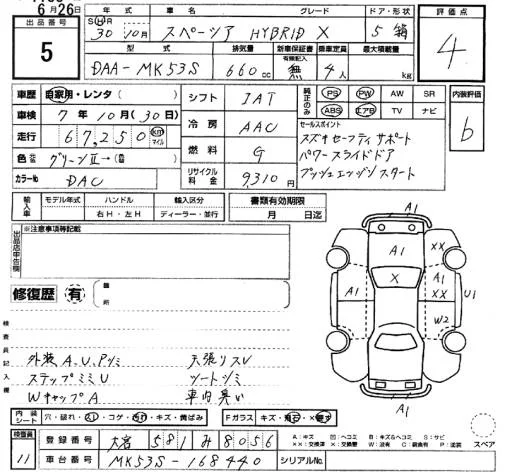 6月26日
出品番号
5
年式 車名 グレード ドア・形状
SH 30年10月 スペーシア HYBRID X 5 箱
型式 排気量 新車保証書 有無記入 乗車定員 最大積載量
DAA-MK53S 660cc 無 4人 kg
評価点
4
車歴 自家用・レンタ ( )
車検 7年10月(30日)
走行 67,250 km マイル
色 グリーンⅡ→( )
カラーNo DAC
シフト IAT
冷房 AAC
燃料 G
リサイクル料金 9,310円
純正のみ PS PW AW SR
ABS エアB TV ナビ
セールスポイント
スズキセーフティサポート
パワースライドドア
プッシュエンジンスタート
内装評価
b
輸入車 モデル年式 ハンドル 輸入区分
年 右H・左H ディーラー・並行
書類有効期限
月 日迄
出品店申告欄
※注意事項等記載
修復歴 有 箇所
検査員記入欄
外装A.U.Pツミ 天張リスV
ステップミミU シートシミ
WキャップA 車内臭い
A1
A1
XX
X
A1
A1
XX
U1
W2
A1
内装シート 穴・破れ・スレ・コゲ・汚れ・キズ・黄ばみ
Fガラス キズ・飛石・×・要す
A:キズ 凹:ヘコミ B:キズ&ヘコミ S:サビ
××:交換済 ×:交換要 W:波有 C:腐食有 P:塗装
スペア
検査員
11
登録番号 大宮 581 み 8056
車台番号 MK53S-168440 シリアルNo.